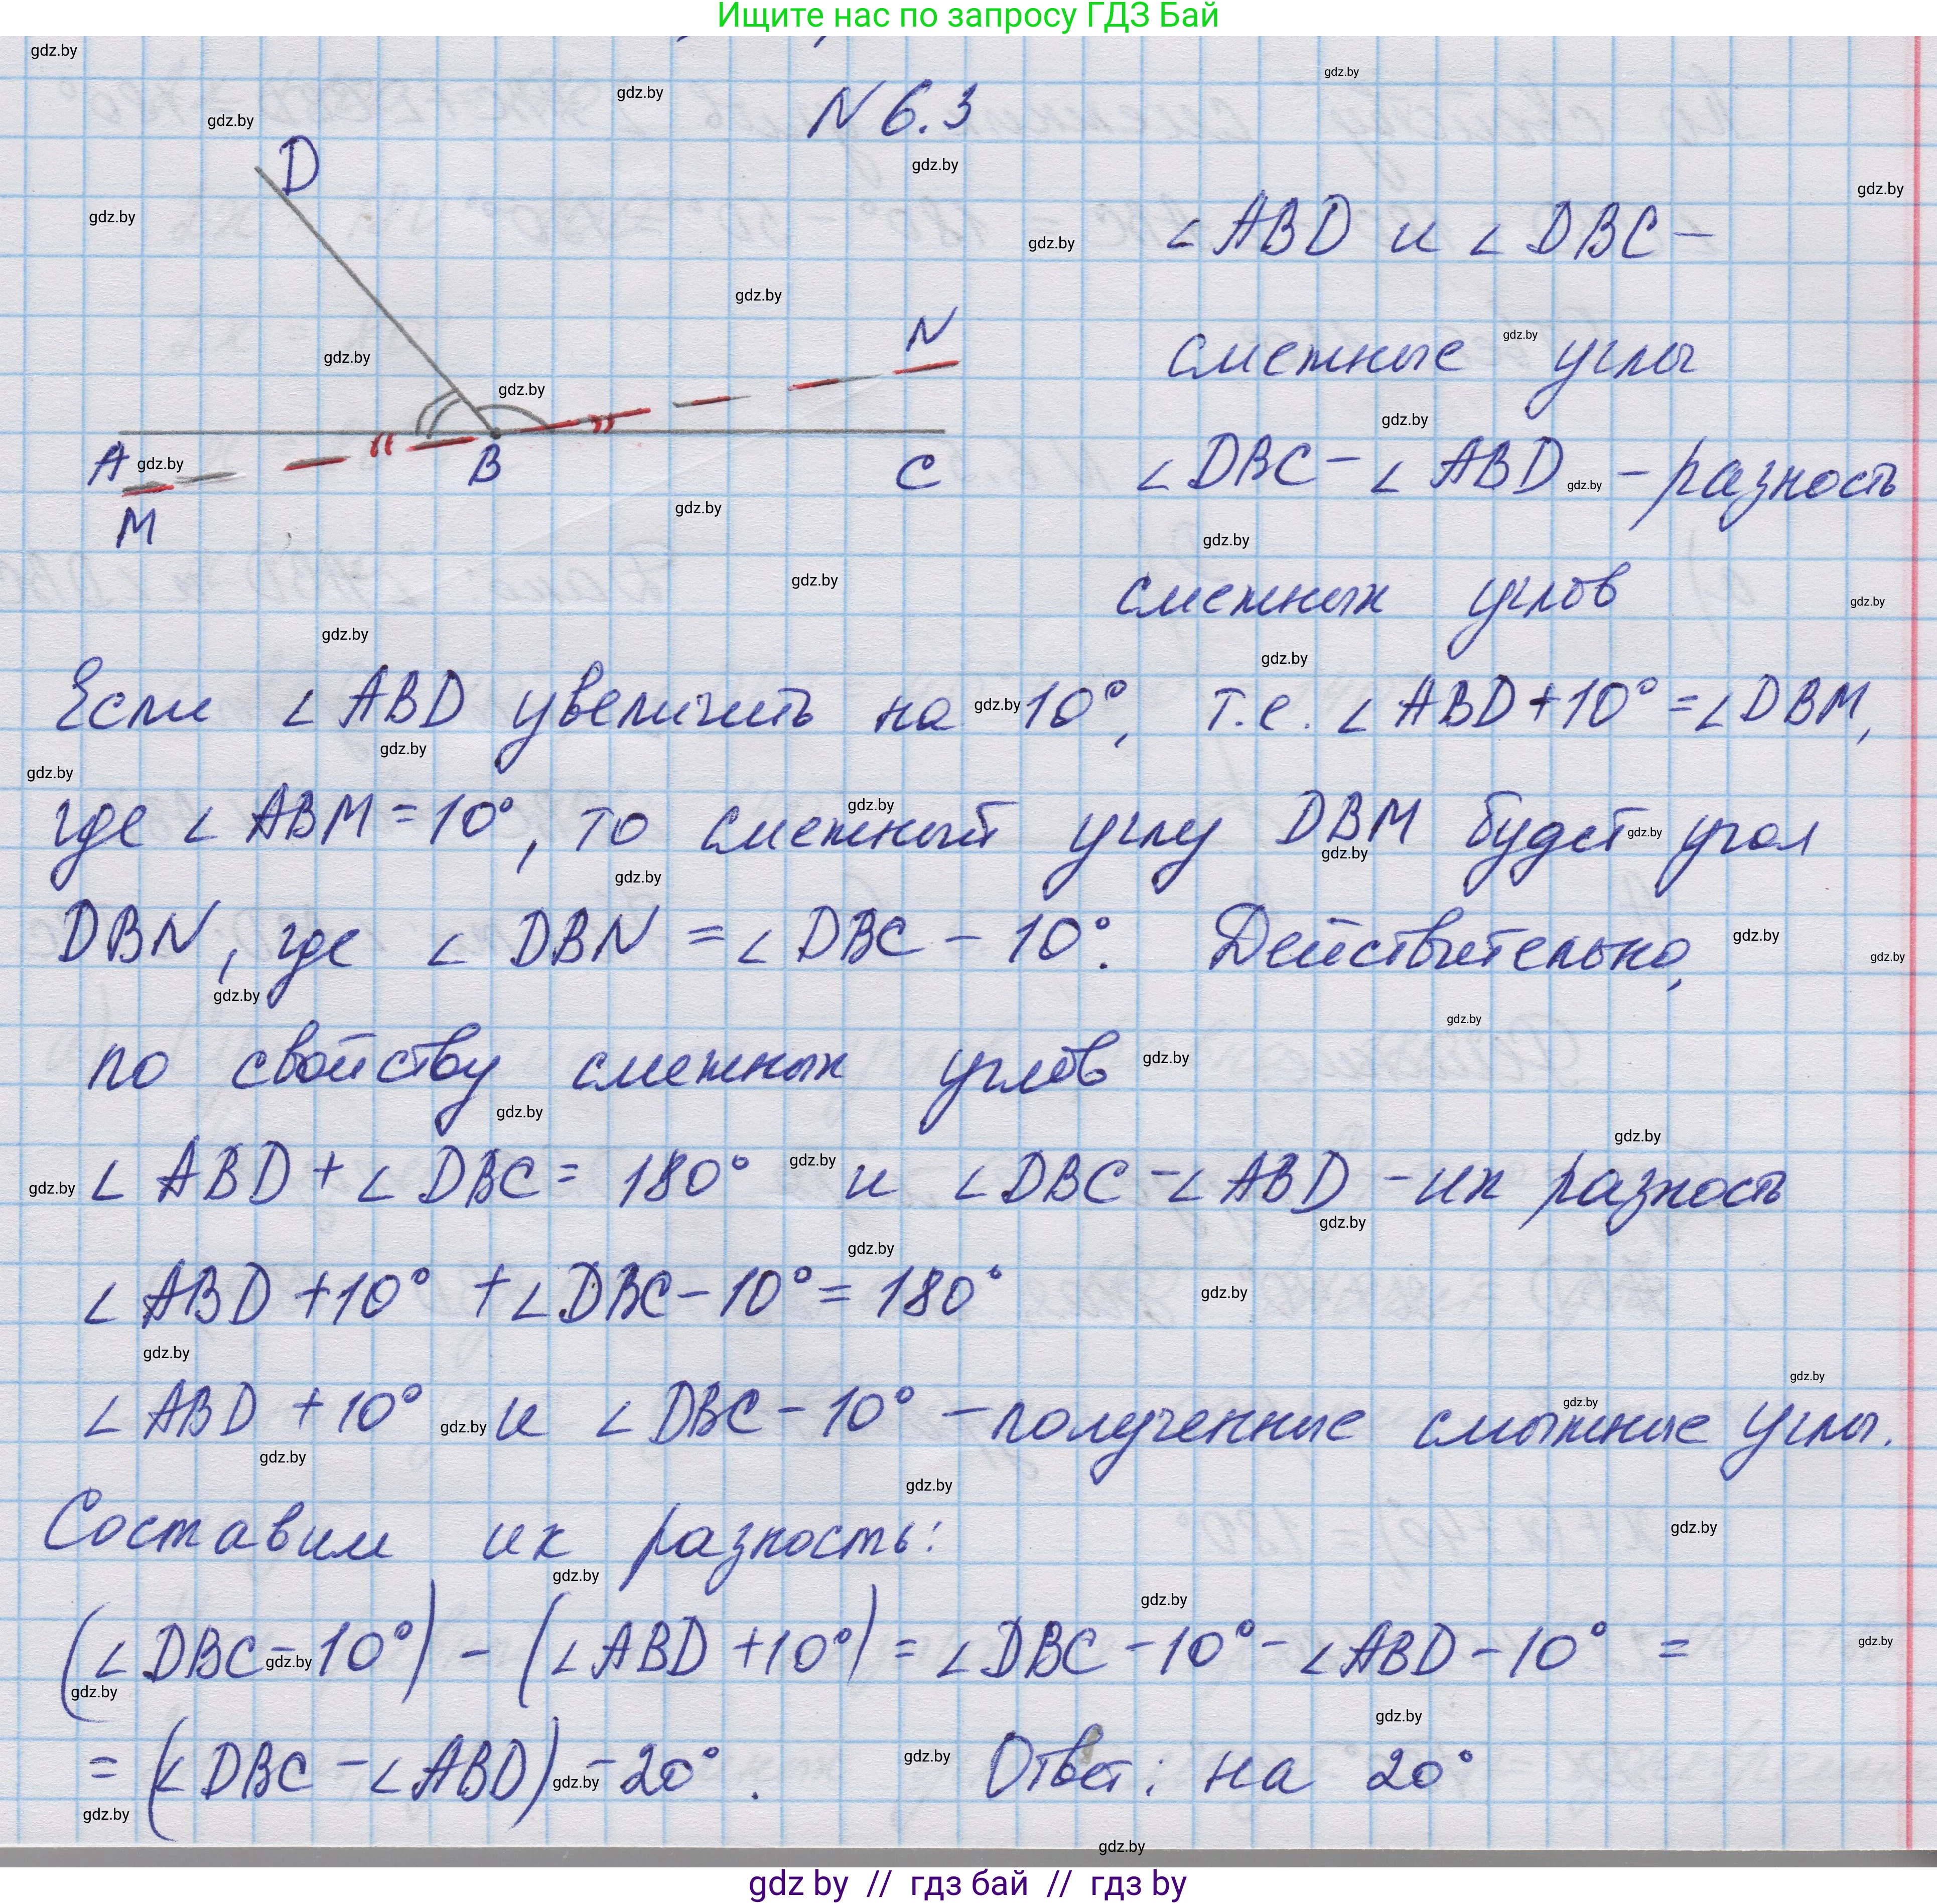 Ищите нас по запросу ГДЗ Бай
N 6.3
D
A
B
C
M
N
∠ABD и ∠DBC –
смежные углы
∠DBC – ∠ABD – разность
смежных углов
Если ∠ABD увеличить на 10°, т.е. ∠ABD + 10° = ∠DBM,
где ∠ABM = 10°, то смежный углу DBM будет угол
DBN, где ∠DBN = ∠DBC – 10°. Действительно,
по свойству смежных углов
∠ABD + ∠DBC = 180° и ∠DBC – ∠ABD – их разность
∠ABD + 10° + ∠DBC – 10° = 180°
∠ABD + 10° и ∠DBC – 10° – полученные смежные углы.
Составим их разность:
(∠DBC – 10°) – (∠ABD + 10°) = ∠DBC – 10° – ∠ABD – 10° =
= (∠DBC – ∠ABD) – 20°. Ответ: на 20°
gdz.by
gdz by // гдз бай // гдз by